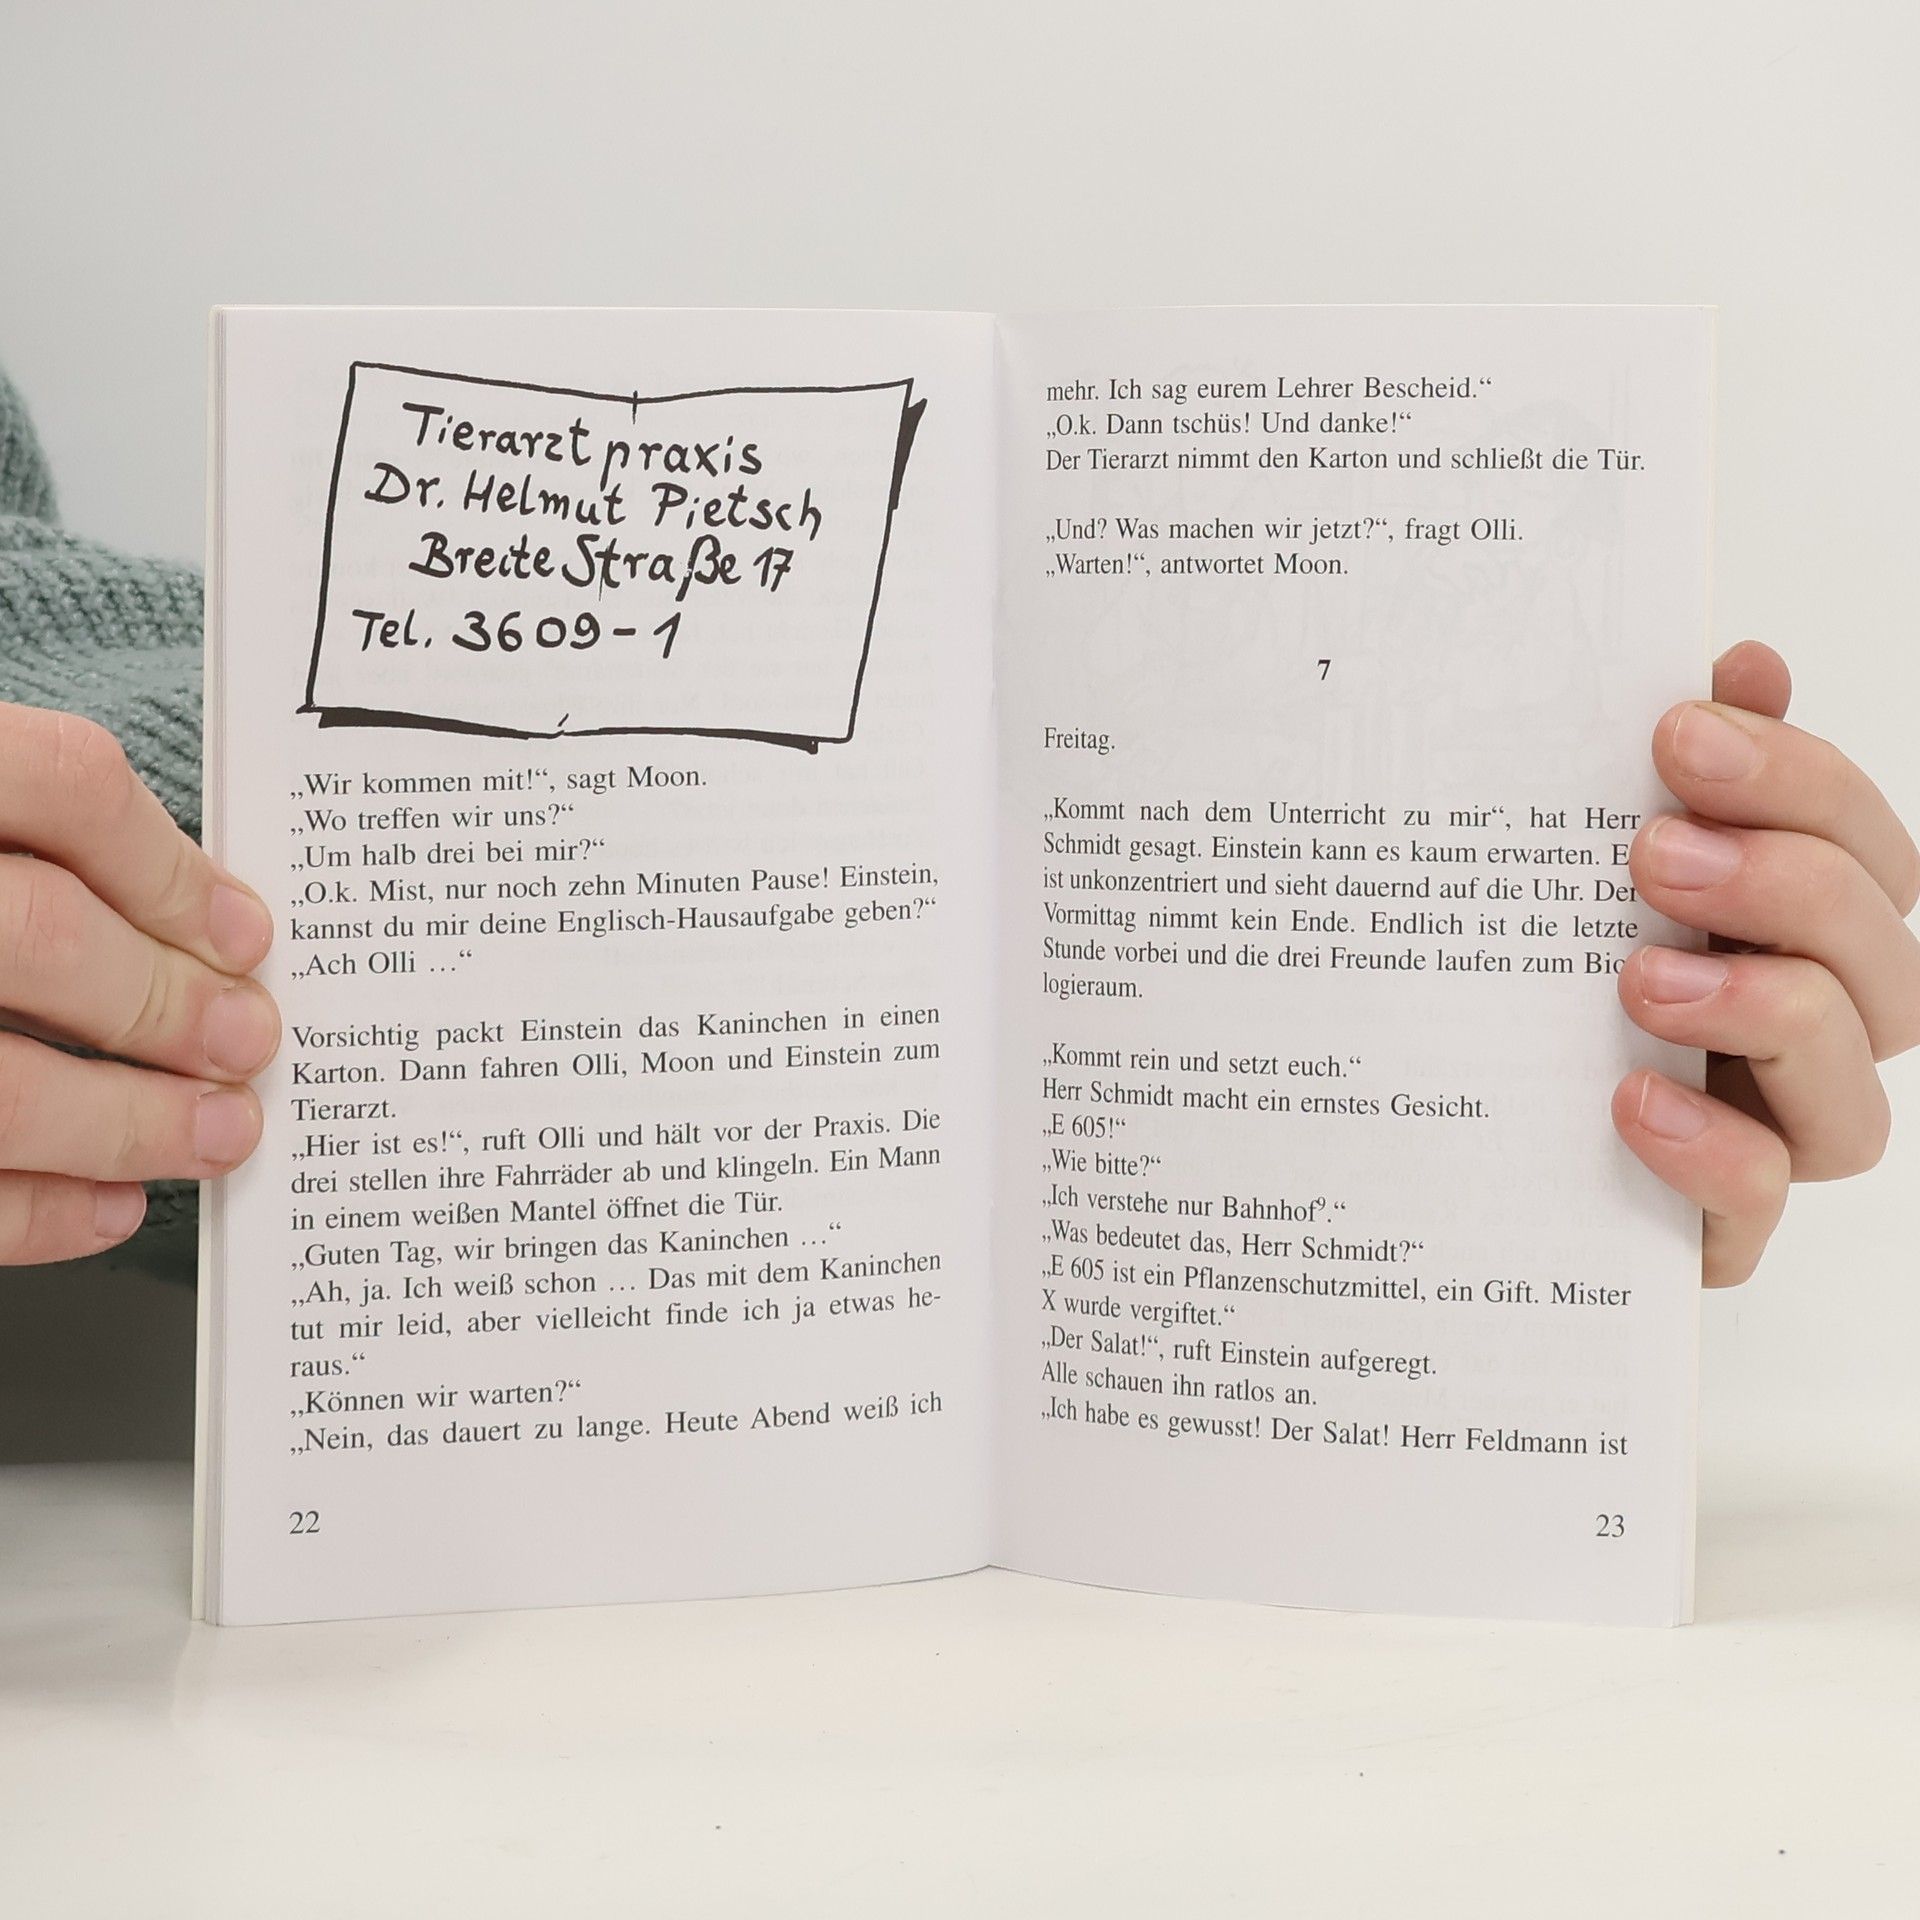 Tierarztpraxis
Dr. Helmut Pietsch
Breite Straße 17
Tel. 3609-1
„Wir kommen mit!“, sagt Moon.
„Wo treffen wir uns?“
„Um halb drei bei mir?“
„O.k. Mist, nur noch zehn Minuten Pause! Einstein,
kannst du mir deine Englisch-Hausaufgabe geben?“
„Ach Olli …“
Vorsichtig packt Einstein das Kaninchen in einen
Karton. Dann fahren Olli, Moon und Einstein zum
Tierarzt.
„Hier ist es!“, ruft Olli und hält vor der Praxis. Die
drei stellen ihre Fahrräder ab und klingeln. Ein Mann
in einem weißen Mantel öffnet die Tür.
„Guten Tag, wir bringen das Kaninchen …“
„Ah, ja. Ich weiß schon … Das mit dem Kaninchen
tut mir leid, aber vielleicht finde ich ja etwas he-
raus.“
„Können wir warten?“
„Nein, das dauert zu lange. Heute Abend weiß ich
22
mehr. Ich sag eurem Lehrer Bescheid.“
„O.k. Dann tschüs! Und danke!“
Der Tierarzt nimmt den Karton und schließt die Tür.
„Und? Was machen wir jetzt?“, fragt Olli.
„Warten!“, antwortet Moon.
7
Freitag.
„Kommt nach dem Unterricht zu mir“, hat Herr
Schmidt gesagt. Einstein kann es kaum erwarten. E
ist unkonzentriert und sieht dauernd auf die Uhr. Der
Vormittag nimmt kein Ende. Endlich ist die letzte
Stunde vorbei und die drei Freunde laufen zum Bio
logieraum.
„Kommt rein und setzt euch.“
Herr Schmidt macht ein ernstes Gesicht.
„E 605!“
„Wie bitte?“
„Ich verstehe nur Bahnhof⁹.“
„Was bedeutet das, Herr Schmidt?“
„E 605 ist ein Pflanzenschutzmittel, ein Gift. Mister
X wurde vergiftet.“
„Der Salat!“, ruft Einstein aufgeregt.
Alle schauen ihn ratlos an.
„Ich habe es gewusst! Der Salat! Herr Feldmann ist
23